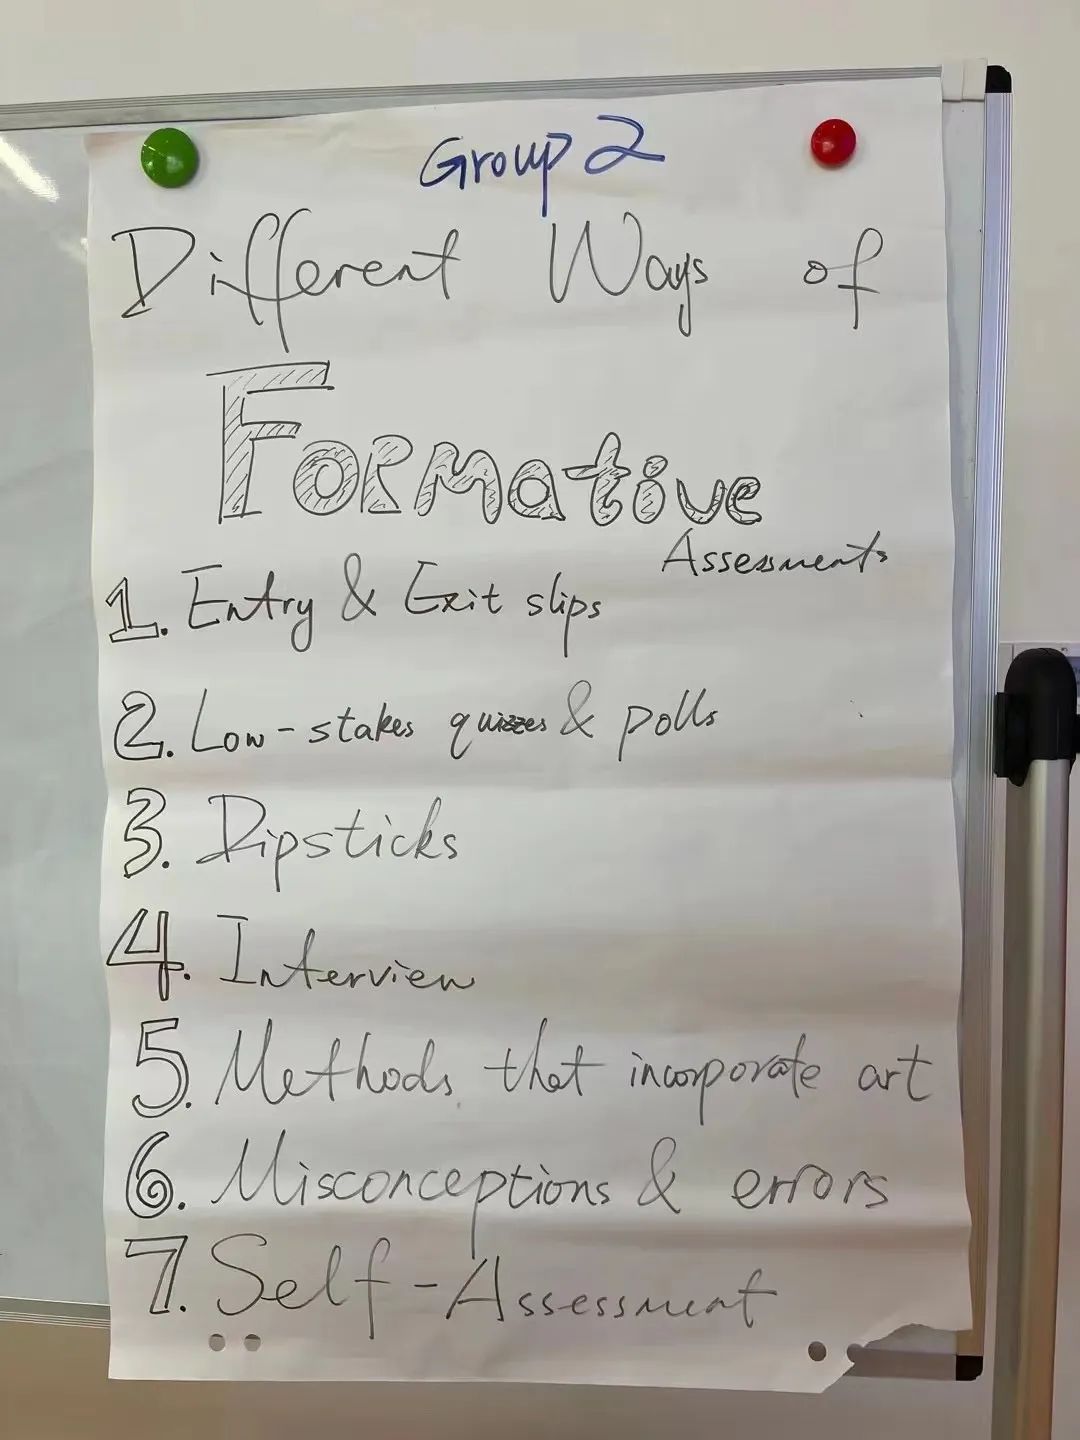 Group 2
Different Ways of
Formative
Assessments
1. Entry & Exit slips
2. Low-stakes quizzes & polls
3. Dipsticks
4. Interview
5. Methods that incorporate art
6. Misconceptions & errors
7. Self-Assessment